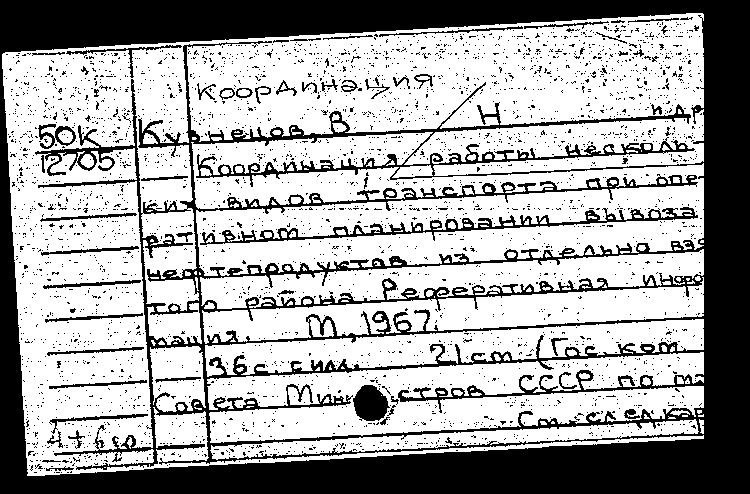 Координация
50К Кузнецов, В Н и др
12705 Координация работы несколь
ких видов транспорта при опе
ративном планировании вывоза
нефтепродуктов из отдельно взя
того района. Реферативная инфор
мация. М., 1967.
36 с. с илл. 21 см (Гос. ком.
Совета Министров СССР по ма
См. след. кар